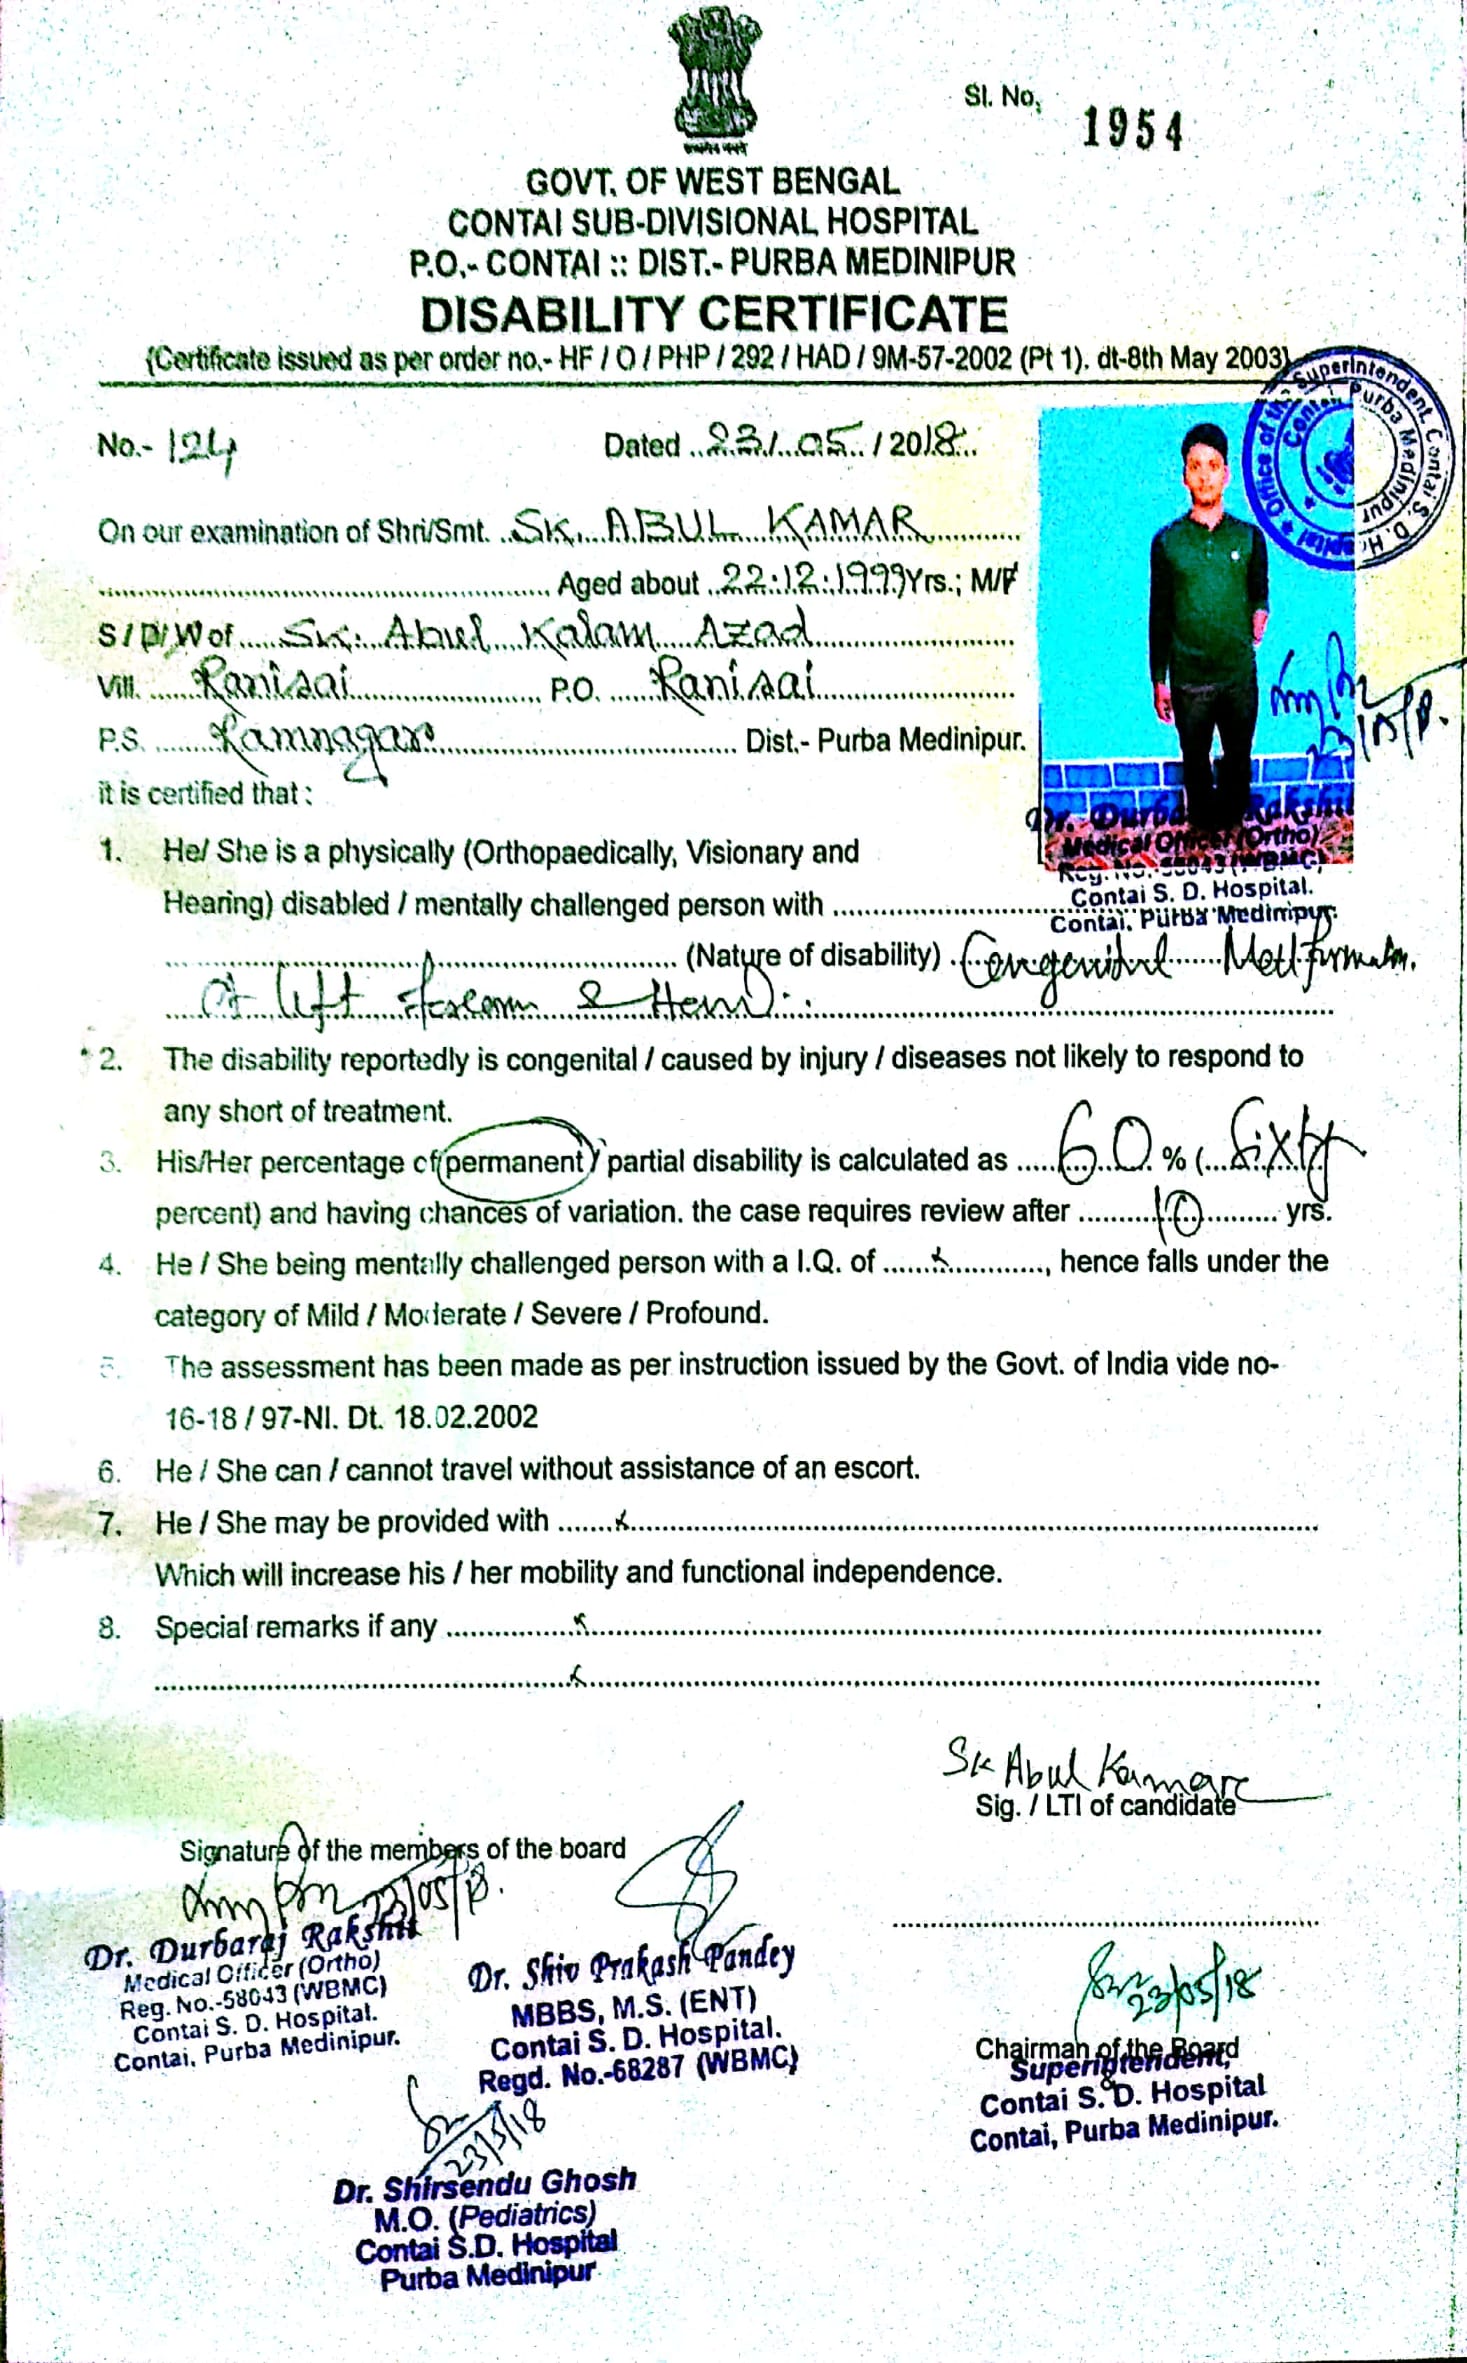 Sl. No, 1954
GOVT. OF WEST BENGAL
CONTAI SUB-DIVISIONAL HOSPITAL
P.O.- CONTAI :: DIST.- PURBA MEDINIPUR
DISABILITY CERTIFICATE
(Certificate issued as per order no.- HF / O / PHP / 292 / HAD / 9M-57-2002 (Pt 1). dt-8th May 2003)
Office of the Superintendent, Contai S. D. Hospital
Contai, Purba Medinipur
No.- 124 Dated 23/05/2018
On our examination of Shri/Smt. SK. ABUL KAMAR
Aged about 22.12.1999 Yrs.; M/F
S/D/W of SK. Abul Kalam Azad
Vill. Ranisai P.O. Ranisai
P.S. Ramnagar Dist.- Purba Medinipur.
it is certified that :
Dr. Durbaraj Rakshit
Medical Officer (Ortho)
Reg. No.-58043 (WBMC)
Contai S. D. Hospital.
Contai, Purba Medinipur.
1. He/ She is a physically (Orthopaedically, Visionary and
Hearing) disabled / mentally challenged person with
(Nature of disability) Congenital Malformation
of left forearm & Hand
2. The disability reportedly is congenital / caused by injury / diseases not likely to respond to
any short of treatment.
3. His/Her percentage of (permanent) / partial disability is calculated as 60 % ( Sixty
percent) and having chances of variation. the case requires review after 10 yrs.
4. He / She being mentally challenged person with a I.Q. of x, hence falls under the
category of Mild / Moderate / Severe / Profound.
5. The assessment has been made as per instruction issued by the Govt. of India vide no-
16-18 / 97-NI. Dt. 18.02.2002
6. He / She can / cannot travel without assistance of an escort.
7. He / She may be provided with x
Which will increase his / her mobility and functional independence.
8. Special remarks if any x
x
SK Abul Kamar
Sig. / LTI of candidate
Signature of the members of the board
23/05/18.
Dr. Durbaraj Rakshit
Medical Officer (Ortho)
Reg. No.-58043 (WBMC)
Contai S. D. Hospital.
Contai, Purba Medinipur.
Dr. Shiv Prakash Pandey
MBBS, M.S. (ENT)
Contai S. D. Hospital.
Regd. No.-68287 (WBMC)
23/05/18
Chairman of the Board
&
Superintendent,
Contai S. D. Hospital
Contai, Purba Medinipur.
23/5/18
Dr. Shirsendu Ghosh
M.O. (Pediatrics)
Contai S.D. Hospital
Purba Medinipur